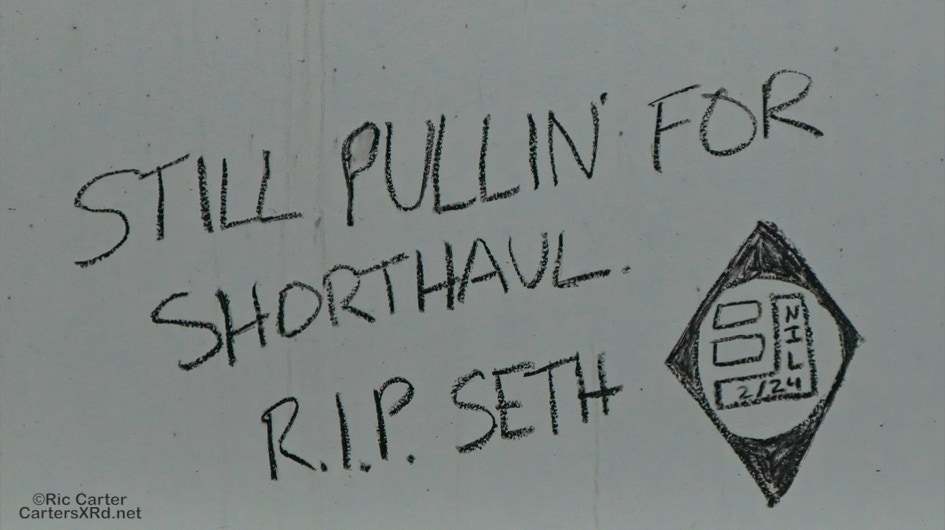 STILL PULLIN' FOR
SHORTHAUL.
R.I.P. SETH
NIL
2/24
©Ric Carter
CartersXRd.net